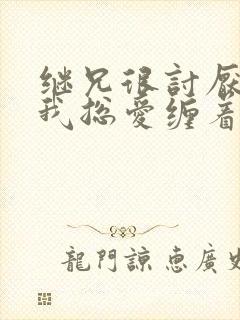 继兄很討厭
我捴愛缠着
龍門諒恵廣